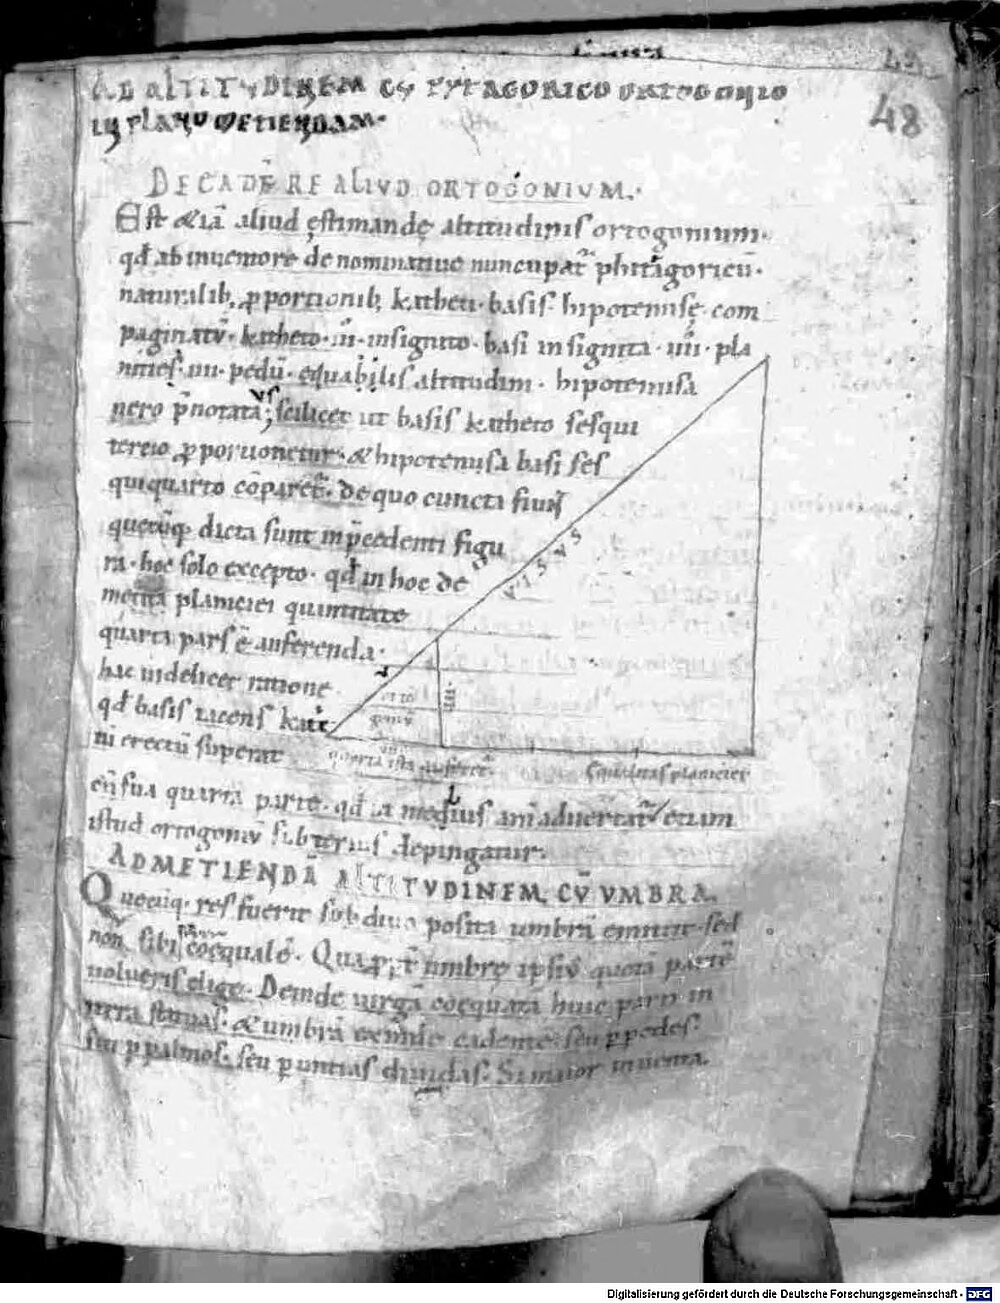 48
AD ALTITVDINEM CV PYTAGORICO ORTOGONIO
IN PLANO METIENDAM.
DE CADERE ALIVD ORTOGONIVM.
Est &iā aliud ęstimandę altitudinis ortogonium.
qđ ab inuentore denominatiue nuncupat᷑ phitagoricū.
naturalib; ꝓportionib; katheti. basis. hipotenusę. com
paginatū. katheto. iii. insignito. basi insignita. iiii. pla
nitiei. pedū. equabilis altitudini. hipotenusa
uero p̄notata; scilicet ut basis katheto sesqui
tercio ꝓportionetur. & hipotenusa basi ses
quiquarto cōparet᷑. de quo cuncta fiunt
quecūq; dicta sunt in p̄cedenti figu
ra. hoc solo excepto. qđ in hoc de
planiciei quantitate
quarta pars ē auferenda.
hac uidelicet ratione
qđ basis iacens kath&
ni erectū superat
V. I. S. V. S
orto
goniū
iiii
quarta ista auferet᷑
Equalitas planiciei
eū sua quarta parte. qđ ut animaduertat᷑ etiam
istud ortogoniū subterius depingatur.
AD METIENDĀ ALTITVDINEM CV̄ VMBRA.
Quecūq; res fuerit sub diuo posita umbrā emittit. sed
non sibi coęqualē. Quaꝓpt᷑ umbrę ipsius quotā partē
uolueris elige. Deinde uirgā coęquatā huic parti in
terra statuas. & umbrā exinde cadentē. seu p̱ pedes.
siu p̱ palmos. seu p̱ untias diuidas. Si maior inuenta.
Digitalisierung gefördert durch die Deutsche Forschungsgemeinschaft - DFG